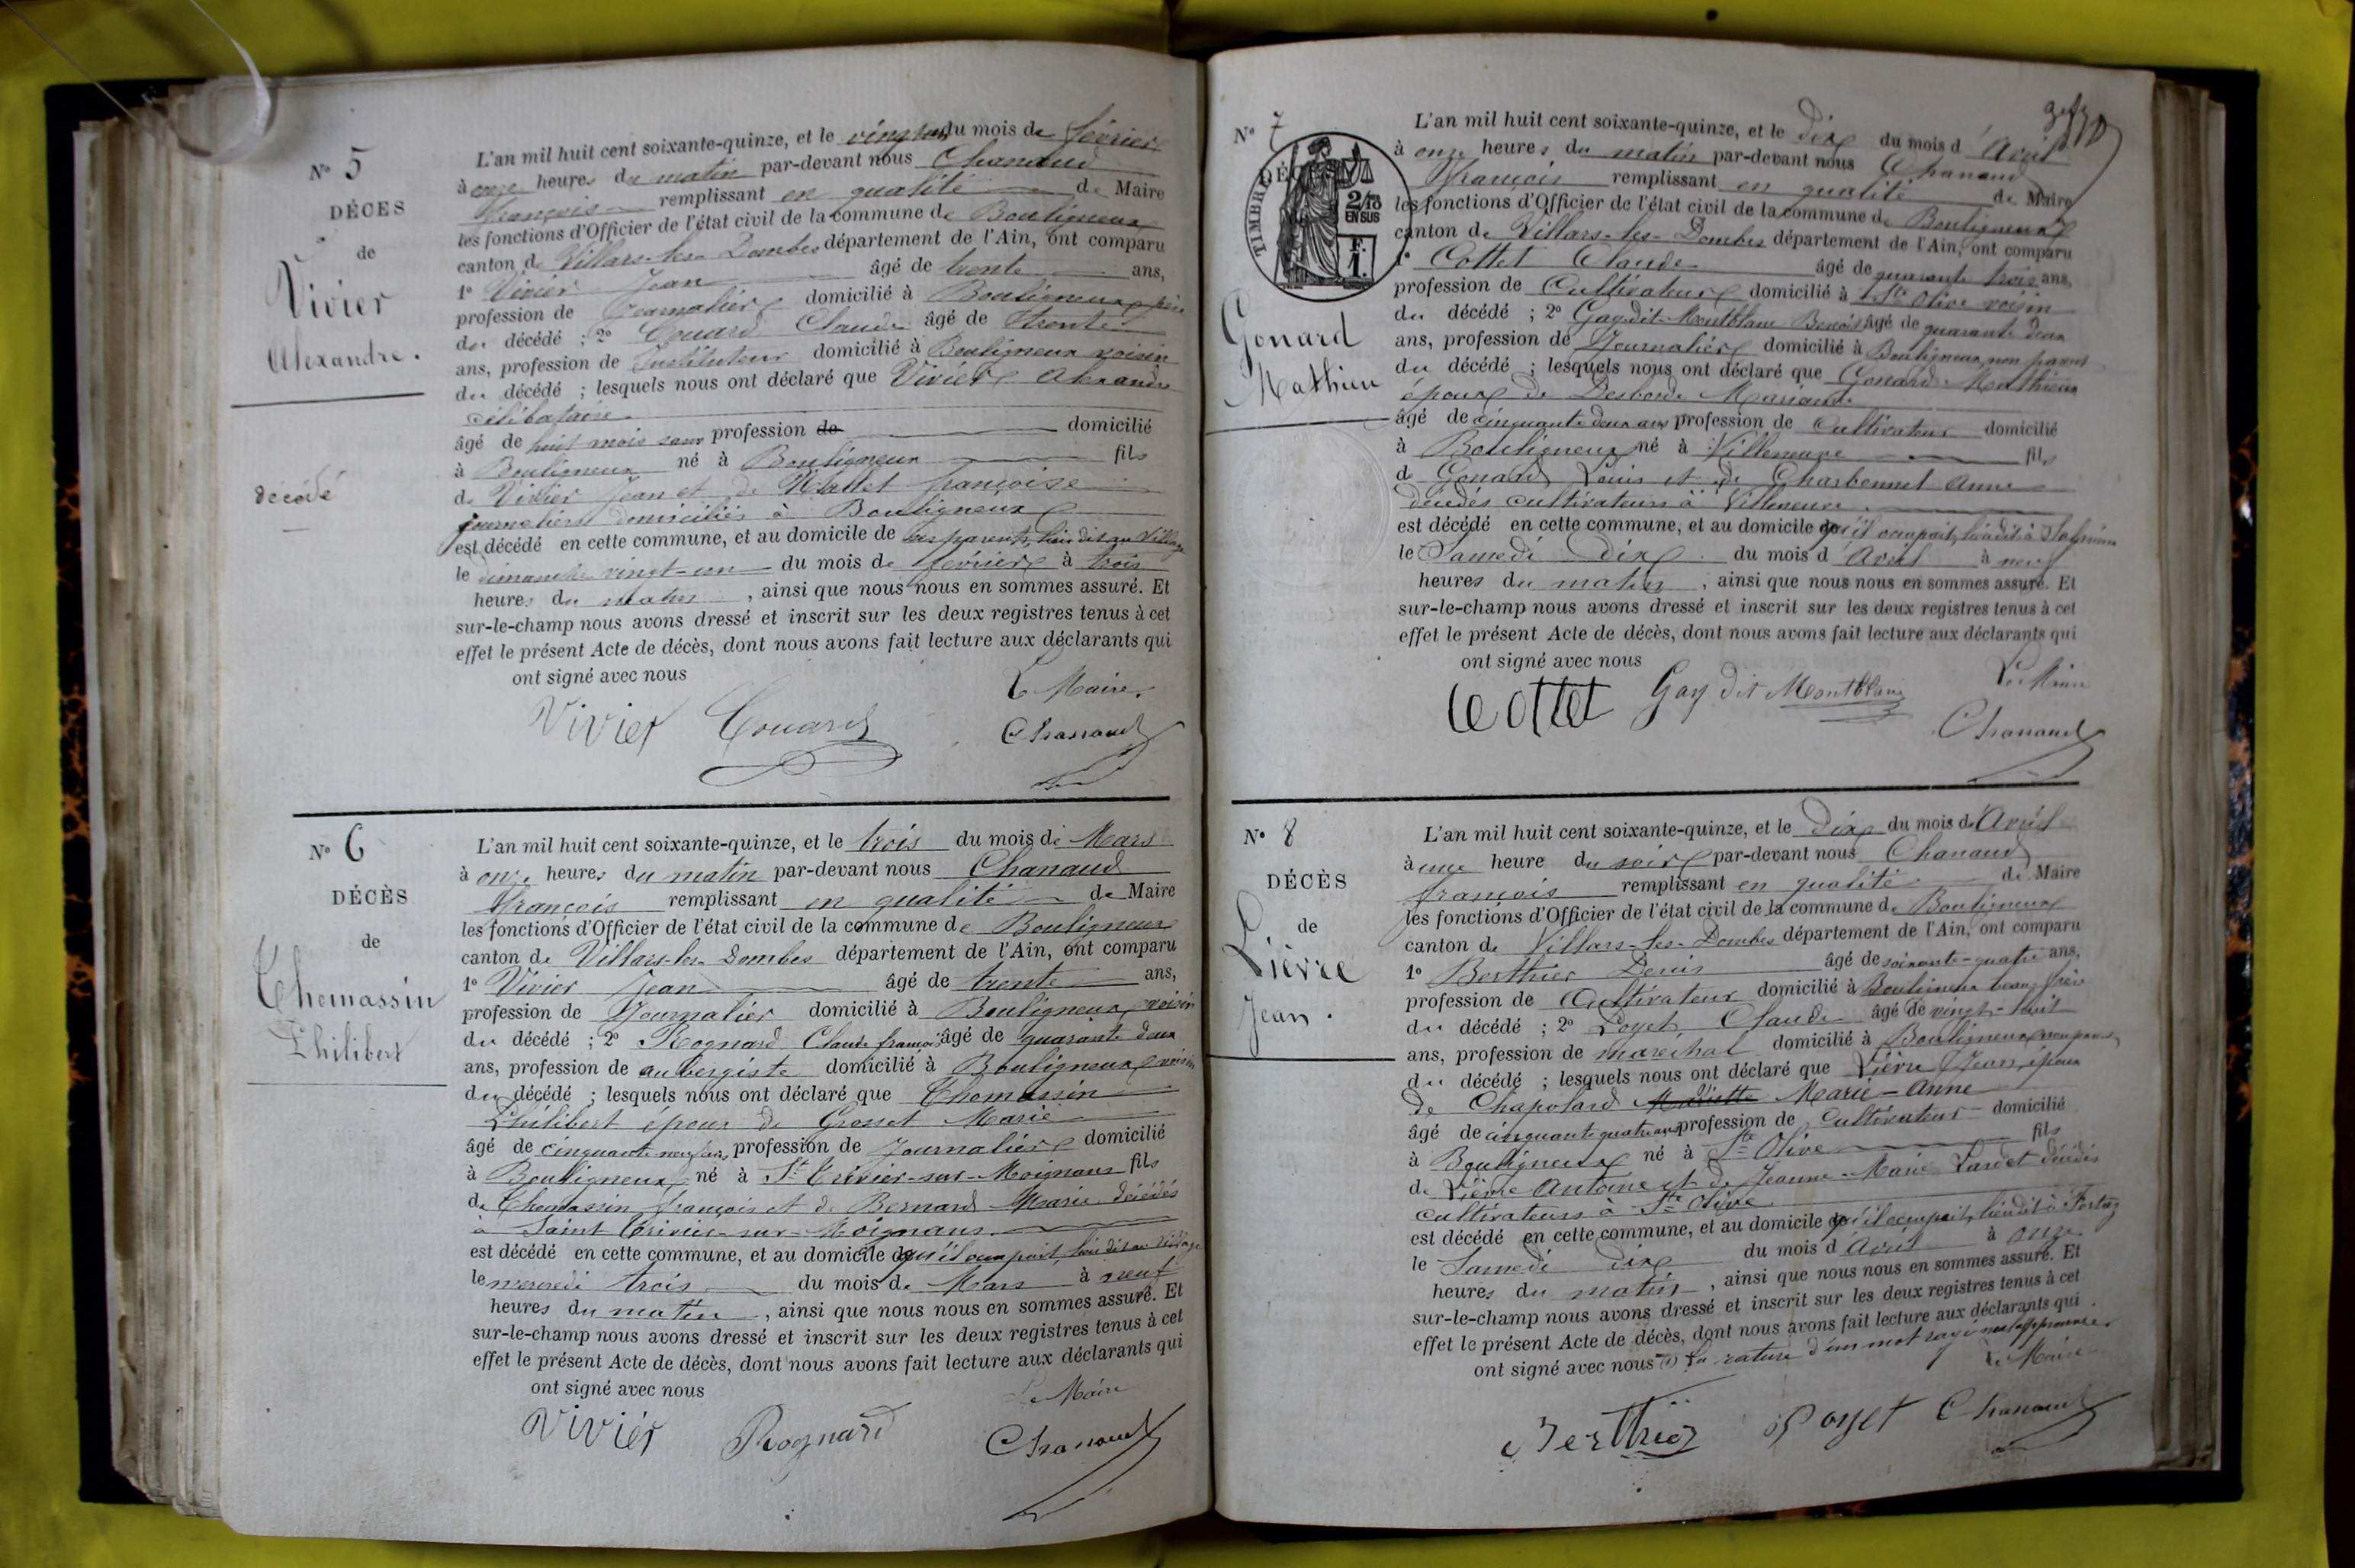 N° 5
DÉCES
de
Vivier
Alexandre.
décédé
L'an mil huit cent soixante-quinze, et le du mois de février
à onze heures du matin par-devant nous Chanaud
François remplissant en qualité de Maire
les fonctions d'Officier de l'état civil de la commune de Bouligneux
canton de Villars-les-Dombes département de l'Ain, ont comparu
1° Vivier Jean âgé de trente ans,
profession de Journalier domicilié à Bouligneux père
du décédé ; 2° Couard Claude âgé de trente
ans, profession de Instituteur domicilié à Bouligneux voisin
du décédé ; lesquels nous ont déclaré que Vivier Alexandre
célibataire
âgé de huit mois sans profession de domicilié
à Bouligneux né à Bouligneux fils
de Vivier Jean et de françoise
journaliers domiciliés à Bouligneux
est décédé en cette commune, et au domicile de ses parents, lieu dit au Village
le dimanche vingt-un du mois de février à trois
heures du matin, ainsi que nous nous en sommes assuré. Et
sur-le-champ nous avons dressé et inscrit sur les deux registres tenus à cet
effet le présent Acte de décès, dont nous avons fait lecture aux déclarants qui
ont signé avec nous
Le Maire
Vivier Couard Chanaud
N° 6
DÉCÈS
de
Thomassin
Philibert
L'an mil huit cent soixante-quinze, et le trois du mois de Mars
à onze heures du matin par-devant nous Chanaud
François remplissant en qualité de Maire
les fonctions d'Officier de l'état civil de la commune de Bouligneux
canton de Villars-les-Dombes département de l'Ain, ont comparu
1° Vivier Jean âgé de trente ans,
profession de Journalier domicilié à Bouligneux voisin
du décédé ; 2° Rognard Claude françois âgé de quarante deux
ans, profession de aubergiste domicilié à Bouligneux voisin
du décédé ; lesquels nous ont déclaré que Thomassin
Philibert époux de Grosset Marie
âgé de cinquante neuf ans, profession de Journalier domicilié
à Bouligneux né à St Trivier-sur-Moignans fils
de Thomassin françois et de Bernard Marie décédés
à Saint Trivier-sur-Moignans
est décédé en cette commune, et au domicile qu'il occupait, lieu dit au Village
le mercredi trois du mois de Mars à neuf
heures du matin, ainsi que nous nous en sommes assuré. Et
sur-le-champ nous avons dressé et inscrit sur les deux registres tenus à cet
effet le présent Acte de décès, dont nous avons fait lecture aux déclarants qui
ont signé avec nous
Le Maire
Vivier Rognard Chanaud
N° 7
DÉCÈS
TIMBRE
2/10
EN SUS
F.
1.
Gonard
Mathieu
L'an mil huit cent soixante-quinze, et le dix du mois d'Avril
à onze heures du matin par-devant nous Chanaud
François remplissant en qualité de Maire
les fonctions d'Officier de l'état civil de la commune de Bouligneux
canton de Villars-les-Dombes département de l'Ain, ont comparu
1° Cottet Claude âgé de quarante trois ans,
profession de Cultivateur domicilié à Ste Olive voisin
du décédé ; 2° Gay dit Montblanc Benoit âgé de quarante deux
ans, profession de Journalier domicilié à Bouligneux, non parent
du décédé ; lesquels nous ont déclaré que Gonard Mathieu
époux de Desborde Mariande
âgé de cinquante deux ans profession de Cultivateur domicilié
à Bouligneux né à Villeneuve fils
de Gonard Louis et de Charbonnet Anne
décédés cultivateurs à Villeneuve
est décédé en cette commune, et au domicile qu'il occupait, lieu dit à
le Samedi dix du mois d'Avril à neuf
heures du matin, ainsi que nous nous en sommes assuré. Et
sur-le-champ nous avons dressé et inscrit sur les deux registres tenus à cet
effet le présent Acte de décès, dont nous avons fait lecture aux déclarants qui
ont signé avec nous
Le Maire
Cottet Gay dit Montblanc Chanaud
N° 8
DÉCÈS
de
Lièvre
Jean.
L'an mil huit cent soixante-quinze, et le dix du mois d'Avril
à une heure du soir par-devant nous Chanaud
françois remplissant en qualité de Maire
les fonctions d'Officier de l'état civil de la commune de Bouligneux
canton de Villars-les-Dombes département de l'Ain, ont comparu
1° Berthier Denis âgé de soixante-quatre ans,
profession de Cultivateur domicilié à Bouligneux beau-frère
du décédé ; 2° Poyet Claude âgé de vingt-huit
ans, profession de maréchal domicilié à Bouligneux non parent
du décédé ; lesquels nous ont déclaré que Lièvre Jean, époux
de Chapolard Mariette Marie-Anne
âgé de cinquante quatre ans profession de Cultivateur domicilié
à Bouligneux né à Ste Olive fils
de Lièvre Antoine et de Jeanne-Marie Lardet décédés
cultivateurs à Ste Olive
est décédé en cette commune, et au domicile qu'il occupait, lieu dit à
le Samedi dix du mois d'Avril à onze
heures du matin, ainsi que nous nous en sommes assuré. Et
sur-le-champ nous avons dressé et inscrit sur les deux registres tenus à cet
effet le présent Acte de décès, dont nous avons fait lecture aux déclarants qui
ont signé avec nous (1) la rature d'un mot rayé
Le Maire
Berthier Poyet Chanaud